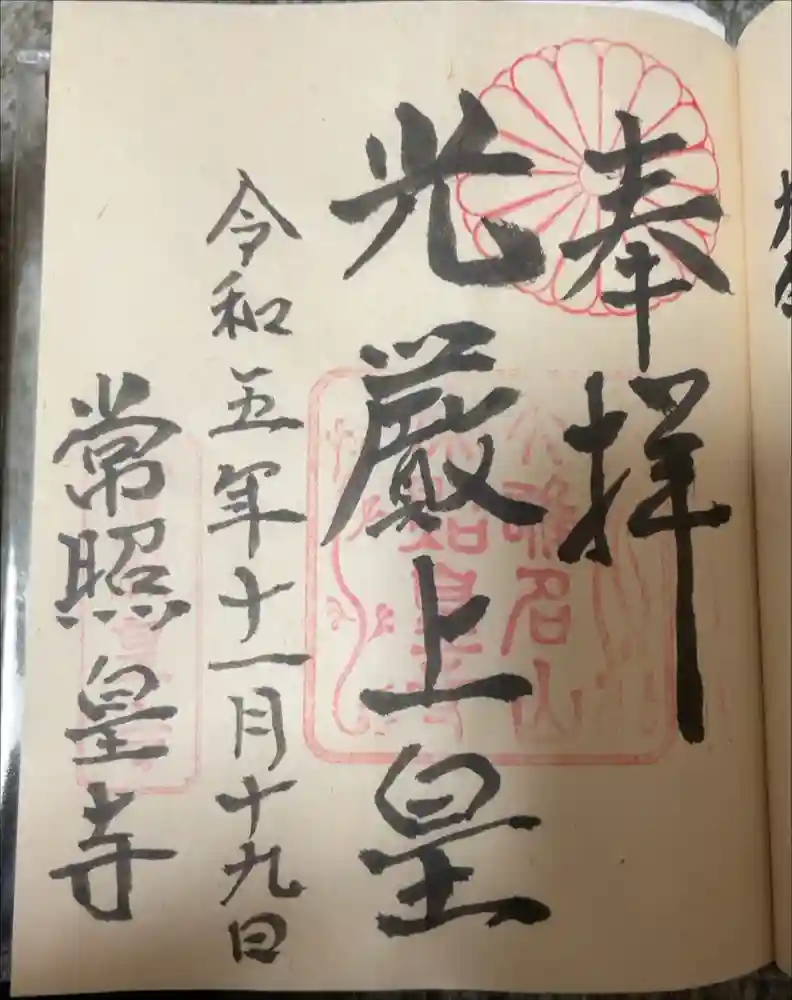 奉拝
光厳上皇
令和五年十一月十九日
常照皇寺